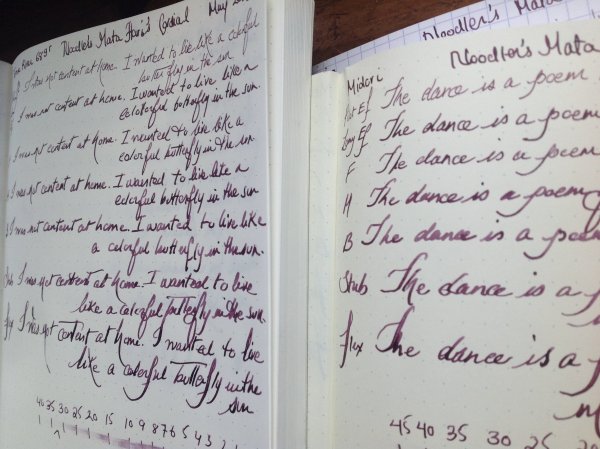 Noodler's Mata Hari's Cordial May
I was not content at home. I wanted to live like a colorful
butterfly in the sun
I was not content at home. I wanted to live like a
colorful butterfly in the sun.
I was not content at home. I wanted to live like a
colorful butterfly in the sun
I was not content at home. I wanted to live like a
colorful butterfly in the sun.
I was not content at home. I wanted to live like
a colorful butterfly in the sun.
Stub I was not content at home. I wanted to live
like a colorful butterfly in the sun.
flex I was not content at home. I wanted to live
like a colorful butterfly in the
sun
40 35 30 25 20 15 10 9 8 7 6 5 4 3
Noodler's Mata
Noodler's Mata
Midori
EF The dance is a poem
EF The dance is a poem
F The dance is a poem
M The dance is a poem
B The dance is a poem
Stub The dance is a
flex The dance is a
45 40 35 30 25 20